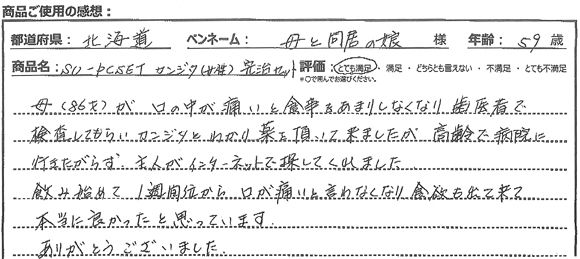 商品ご使用の感想：
都道府県： 北海道 ペンネーム： 母と同居の娘 様 年齢： 59 歳
商品名： SU-PCSET カンジダ(女性)完治セット 評価： とても満足 ・ 満足 ・ どちらとも言えない ・ 不満足 ・ とても不満足
※○で囲んでお選びください。
母(86才)が 口の中が痛いと食事をあまりしなくなり 歯医者で
検査してもらい カンジダとわかり 薬を頂いて来ましたが 高齢で病院に
行きたがらず、主人がインターネットで探してくれました。
飲み始めて 1週間位から 口が痛いと言わなくなり 食欲も出て来て
本当に良かったと思っています。
ありがとうございました。